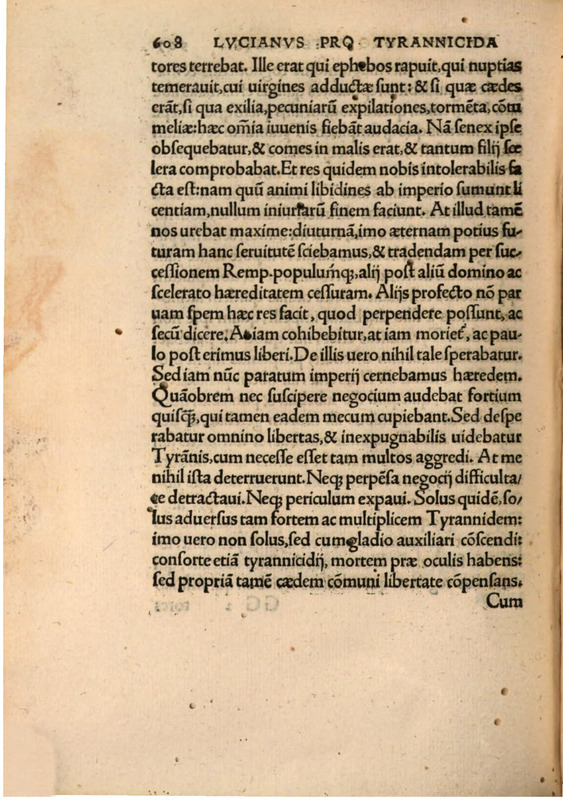 608 LVCIANVS PRO TYRANNICIDA
tores terrebat. Ille erat qui ephebos rapuit, qui nuptias
temerauit, cui uirgines adductæ sunt: & si quæ cædes
erãt, si qua exilia, pecuniarũ expilationes, tormẽta, cõtu
meliæ: hæc om̃ia iuuenis fiebãt audacia. Nã senex ipse
obsequebatur, & comes in malis erat, & tantum filij sce
lera comprobabat. Et res quidem nobis intolerabilis fa
cta est: nam quũ animi libidines ab imperio sumunt li
centiam, nullum iniuriarũ finem faciunt. At illud tamẽ
nos urebat maxime: diuturnã, imo æternam potius fu-
turam hanc seruitutẽ sciebamus, & tradendam per suc-
cessionem Remp. populumq́;, alij post aliũ domino ac
scelerato hæreditatem cessuram. Alijs profecto nõ par
uam spem hæc res facit, quod perpendere possunt, ac
secũ dicere, At iam cohibebitur, at iam morieť, ac pau-
lo post erimus liberi. De illis uero nihil tale sperabatur.
Sed iam nũc paratum imperij cernebamus hæredem.
Quãobrem nec suscipere negocium audebat fortium
quisq̃, qui tamen eadem mecum cupiebant. Sed despe
rabatur omnino libertas, & inexpugnabilis uidebatur
Tyrãnis, cum necesse esset tam multos aggredi. At me
nihil ista deterruerunt. Neq; perpẽsa negocij difficulta/
te detractaui. Neq; periculum expaui. Solus quidẽ, so/
lus aduersus tam fortem ac multiplicem Tyrannidem:
imo uero non solus, sed cum gladio auxiliari cõscendi:
consorte etiã tyrannicidij, mortem præ oculis habens:
sed propriã tamẽ cædem cõmuni libertate cõpensans.
Cum